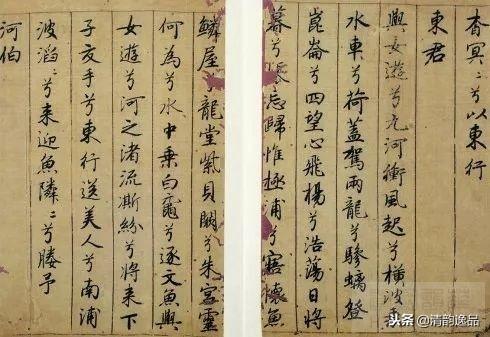 杳冥〻兮以東行
東君
與女遊兮九河衝風起兮橫波
水車兮荷蓋駕兩龍兮驂螭登
崑崙兮四望心飛楊兮浩蕩日將
暮兮忘歸惟極浦兮寤懷魚
鱗屋兮龍堂紫貝闕兮朱宮靈
何為兮水中乘白黿兮逐文魚與
女遊兮河之渚流澌紛兮將来下
子交手兮東行送美人兮南浦
波滔〻兮来迎魚隣〻兮媵予
河伯
头条 @清韵逸品